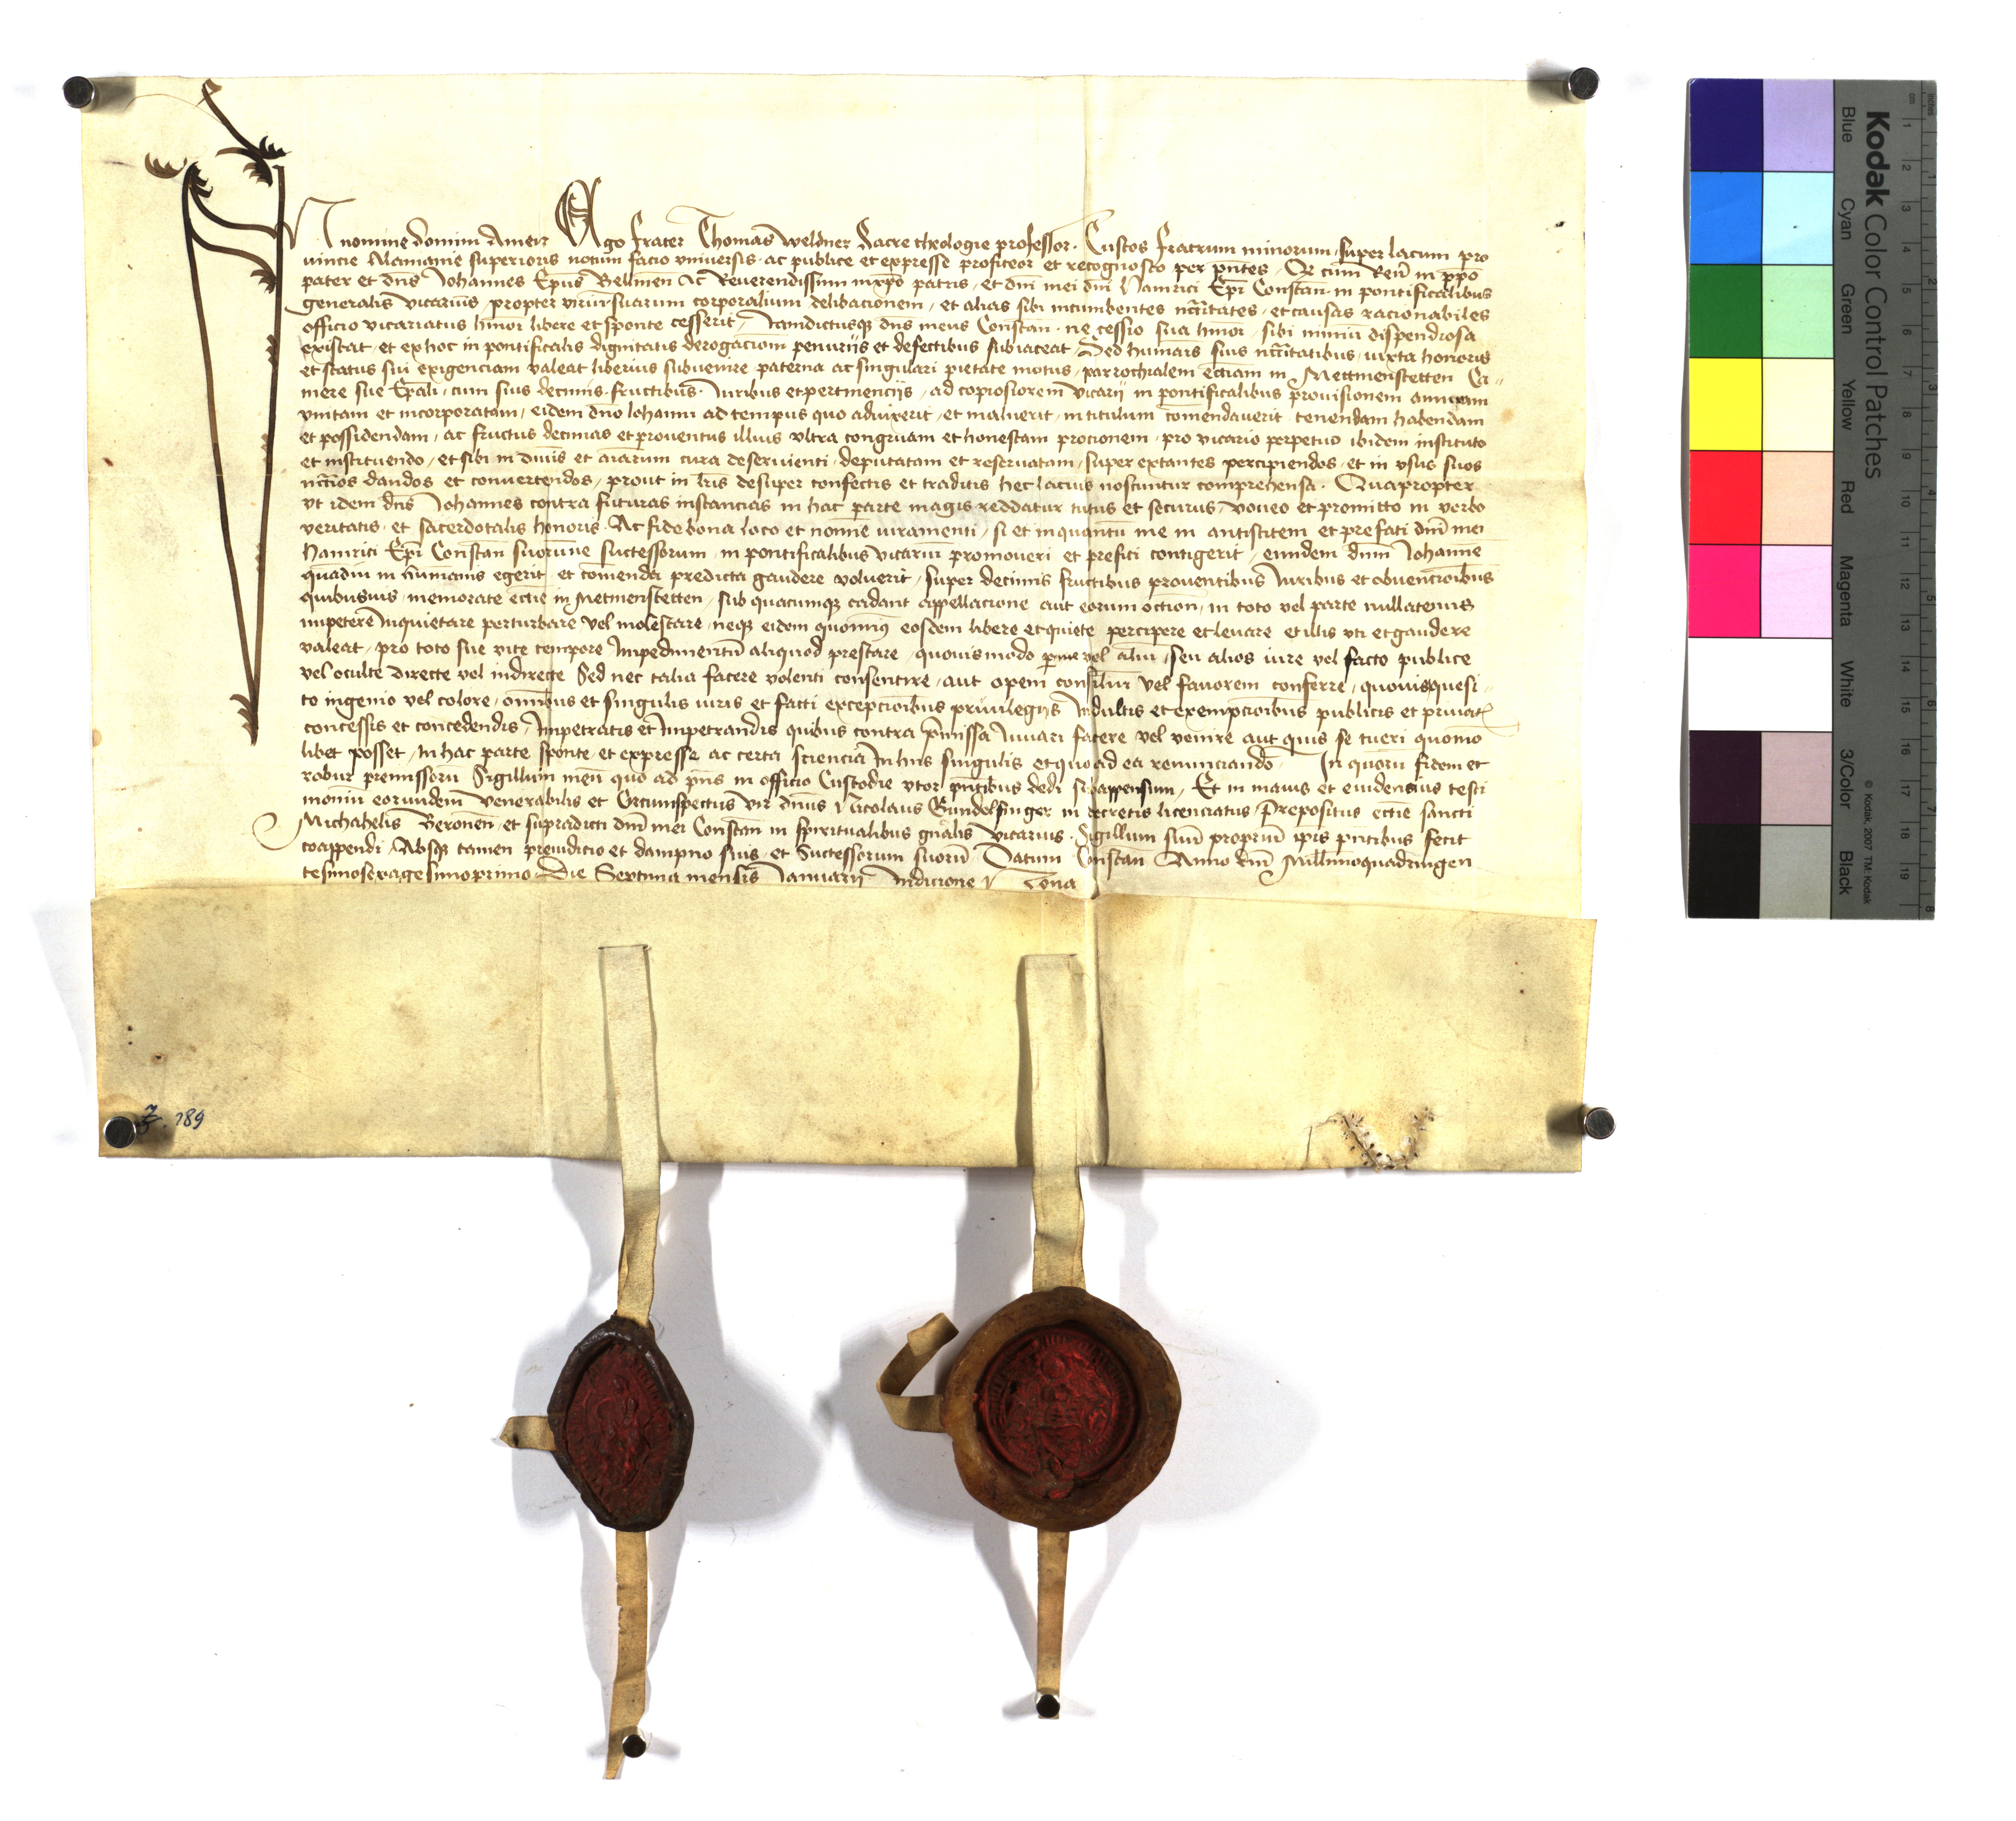 In nomine domini Amen Ego frater Thomas Weldner Sacre theologie professor. Custos fratrum minorum super lacum pro
vincie Alamanie superioris notum facio vniversis ac publice et expresse profiteor et recognosco per pn̄tes Qr cum Reū in xpō
pater et dn̄s Johannes Ep̄us Bellinen̄ Ac Reverendissimi in xpō patris et dn̄i mei dn̄i Hainrici Ep̄i Constan̄ in pontificalibus
generalis vicarius propter viriū suarum corporalium debilitacionem et alias sibi incumbentes nc̄citates et causas racionabiles
officio vicariatus hm̄oi libere et sponte cesserit Jamdictusqꝫ dn̄s meus Constan̄ ne cessio sua hm̄oi sibi nimiū dispendiosa
existat et ex hoc in pontificalis dignitatis derogacionem penuriis et defectibus subiaceat Sed humanis suis nc̄citatibus iuxta honoris
et status sui exigenciam valeat liberius subvenire paterna ac singulari pietate motus parrochialem ecc̄iam in Mettmenstetten Ca
mere sue Ep̄ali cum suis decimis fructibus Iuribus et pertinenciis ad copiosiorem vicarii in pontificalibus provisionem annexam
vnitam et incorporatam eidem dn̄o Johanni ad tempus quo advixerit et maluerit in titulum com̄endaverit tenendam habendam
et possidendam ac fructus decimas et proventus illius vltra congruam et honestam porcionem pro vicario perpetuo ibidem instituto
et instituendo et sibi in divis et aīarum cura deservienti deputatam et reservatam super extantes percipiendos et in vsus suos
nc̄c̄ios dandos et convertendos prout in lr̄is desuper confectis et traditis hec lacius noscuntur comprehensa. Quapropter
vt idem dn̄s Johannes contra futuras instancias in hac parte magis reddatur tutus et securus voveo et promitto in verbo
veritatis et sacerdotalis honoris Ac fide bona loco et nomine iuramenti si et inquantū me in antistitem et prefati dn̄i mei
Hainrici Ep̄i Constan̄ suorumve successorum in pontificalibus vicariū promoveri et prefici contigerit eundem dn̄m Johannē
quādiu in hūmanis egerit et com̄enda predicta gaudere voluerit super decimis fructibus proventibus Iuribus et obvencionibus
quibusuis memorate ecc̄ie in Metmenstetten sub quacumqꝫ cadant appellacione aut eorum occasion̄ in toto vel parte nullatenus
impetere Inquietare perturbare vel molestare neqꝫ eidem quominus eosdem libere et quiete percipere et levare et illis vti et gaudere
valeat pro toto sue vite tempore Impedimentū aliquod prestare quovismodo per me vel aliū seu alios iure vel facto publice
vel oculte directe vel indirecte Sed nec talia facere volenti consentire aut opem consiliū vel favorem conferre quovis quesi
to ingenio vel colore om̄ibus et singulis iuris et facti excepcionibus privilegiis Indultis et exempcionibus publicis et privatꝭ
concessis et concedendis Impetratis et Impetrandis quibus contra p̄missa Iuvari facere vel venire aut quis se tueri quomo
libet posset In hac parte sponte et expresse ac certa sciencia In hiis singulis et quoad ea renunciando In quorū fidem et
robur premissorū Sigillum meū quo ad pn̄s in officio Custodie vtor pn̄tibus dedi subappensum Et in maius et evidencius testi
moniū eorundem Venerabilis et Circumspectus vir dn̄us Nicolaus Gundelfinger in decretis licenciatus Prepositus ecc̄ie sancti
Michahelis Beronen̄ et supradicti dn̄i mei Constan̄ in spiritualibus gn̄alis vicarius Sigillum suū propriū ip̄is pn̄tibus fecit
coappendi Absqꝫ tamen preiudicio et dampno suis et Successorum suorū Datum Constan̄ Anno dn̄i Millīmoquadringen
tesimosexagesimoprimo Die Septima mensis Januarii Indicione Nona
Z. 189
Kodak Color Control Patches
Blue Cyan Green Yellow Red Magenta White 3/Color Black
© Kodak, 2007 TM: Kodak
cm 1 2 3 4 5 6 7 8 9 10 11 12 13 14 15 16 17 18 19
inches 1 2 3 4 5 6 7 8